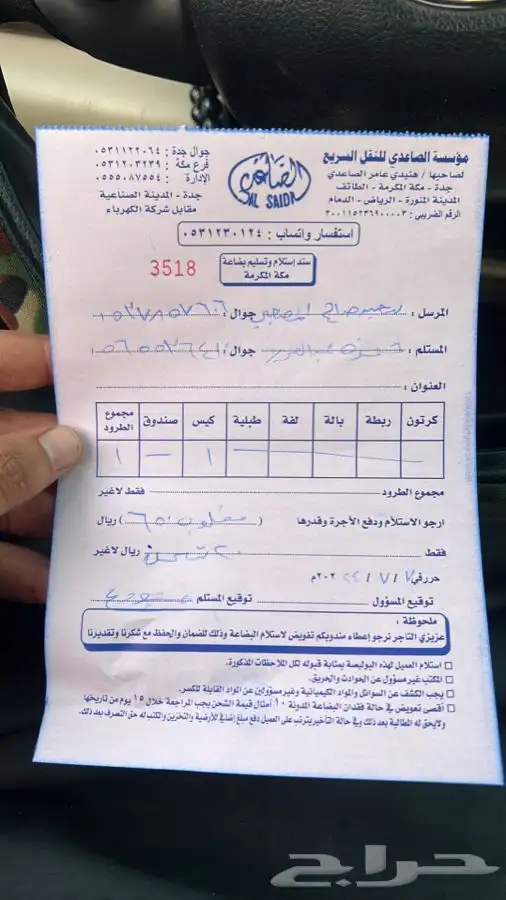 مؤسسة الصاعدي للنقل السريع
لصاحبها / هنيدي عامر الصاعدي
جدة - مكة المكرمة - الطائف
المدينة المنورة - الرياض - الدمام
الرقم الضريبي : ٣٠٠١١٥٢٣٦٩٠٠٠٠٣
الصاعدي
AL SAIDI
جوال جدة : ٠٥٣١١٢٢٠٦٤
فرع مكة : ٠٥٣١٢٠٣٢٣٩
الإدارة : ٠٥٥٥٠٨٧٥٥٤
جدة - المدينة الصناعية
مقابل شركة الكهرباء
استفسار واتساب : ٠٥٣١٢٣٠١٢٤
سند إستلام وتسليم بضاعة
مكة المكرمة
3518
المرسل : جوال :
المستلم : جوال :
العنوان :
كرتون ربطة بالة لفة طبلية كيس صندوق مجموع الطرود
١ — ١
مجموع الطرود فقط لاغير
ارجو الاستلام ودفع الأجرة وقدرها ( ٦٥ ) ريال
فقط ريال لاغير
حرر في ٧ / ٧ / ٢٠٢٤م
توقيع المسؤول توقيع المستلم
ملحوظة :
عزيزي التاجر نرجو إعطاء مندوبكم تفويض لاستلام البضاعة وذلك للضمان والحفظ مع شكرنا وتقديرنا
استلام العميل لهذه البوليصة بمثابة قبوله لكل الملاحظات المذكورة.
المكتب غير مسؤول عن الحوادث والحريق.
يجب الكشف عن السوائل والمواد الكيميائية وغير مسؤولين عن المواد القابلة للكسر.
أقصى تعويض في حالة فقدان البضاعة المدونة ١٠ أمثال قيمة الشحن يجب المراجعة خلال ١٥ يوم من تاريخها
ولايحق له المطالبة بعد ذلك وفي حالة التأخير يترتب على العميل دفع مبلغ إضافي للأرضية والتخزين والمكتب له حق التصرف بعد ذلك.
حراج